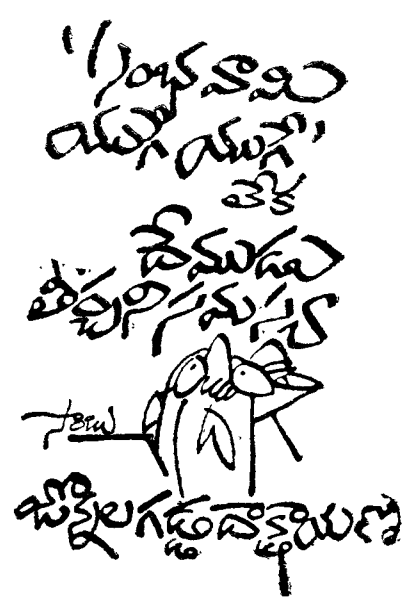 'సంభవామి
యుగే యుగే'
లేక
దేముడు
తీర్చని సమస్యా
జొన్నలగడ్డ దాక్షాయణి